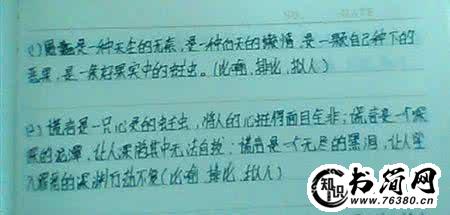 NO. DATE
(1)愚蠢是一种天生的无能,是一种后天的懒惰,是一颗自己种下的
恶果,是一条好果实中的蛀虫。(比喻,排比,拟人)
(2)谎言是一只心灵的蛀虫,将人的心蛀得面目全非;谎言是一个深
深的沼泽,让人深陷其中无法自拔;谎言是一个无尽的黑洞,让人坠
入罪恶的深渊万劫不复(比喻,排比,拟人)
知识
书简网
www.76380.cn